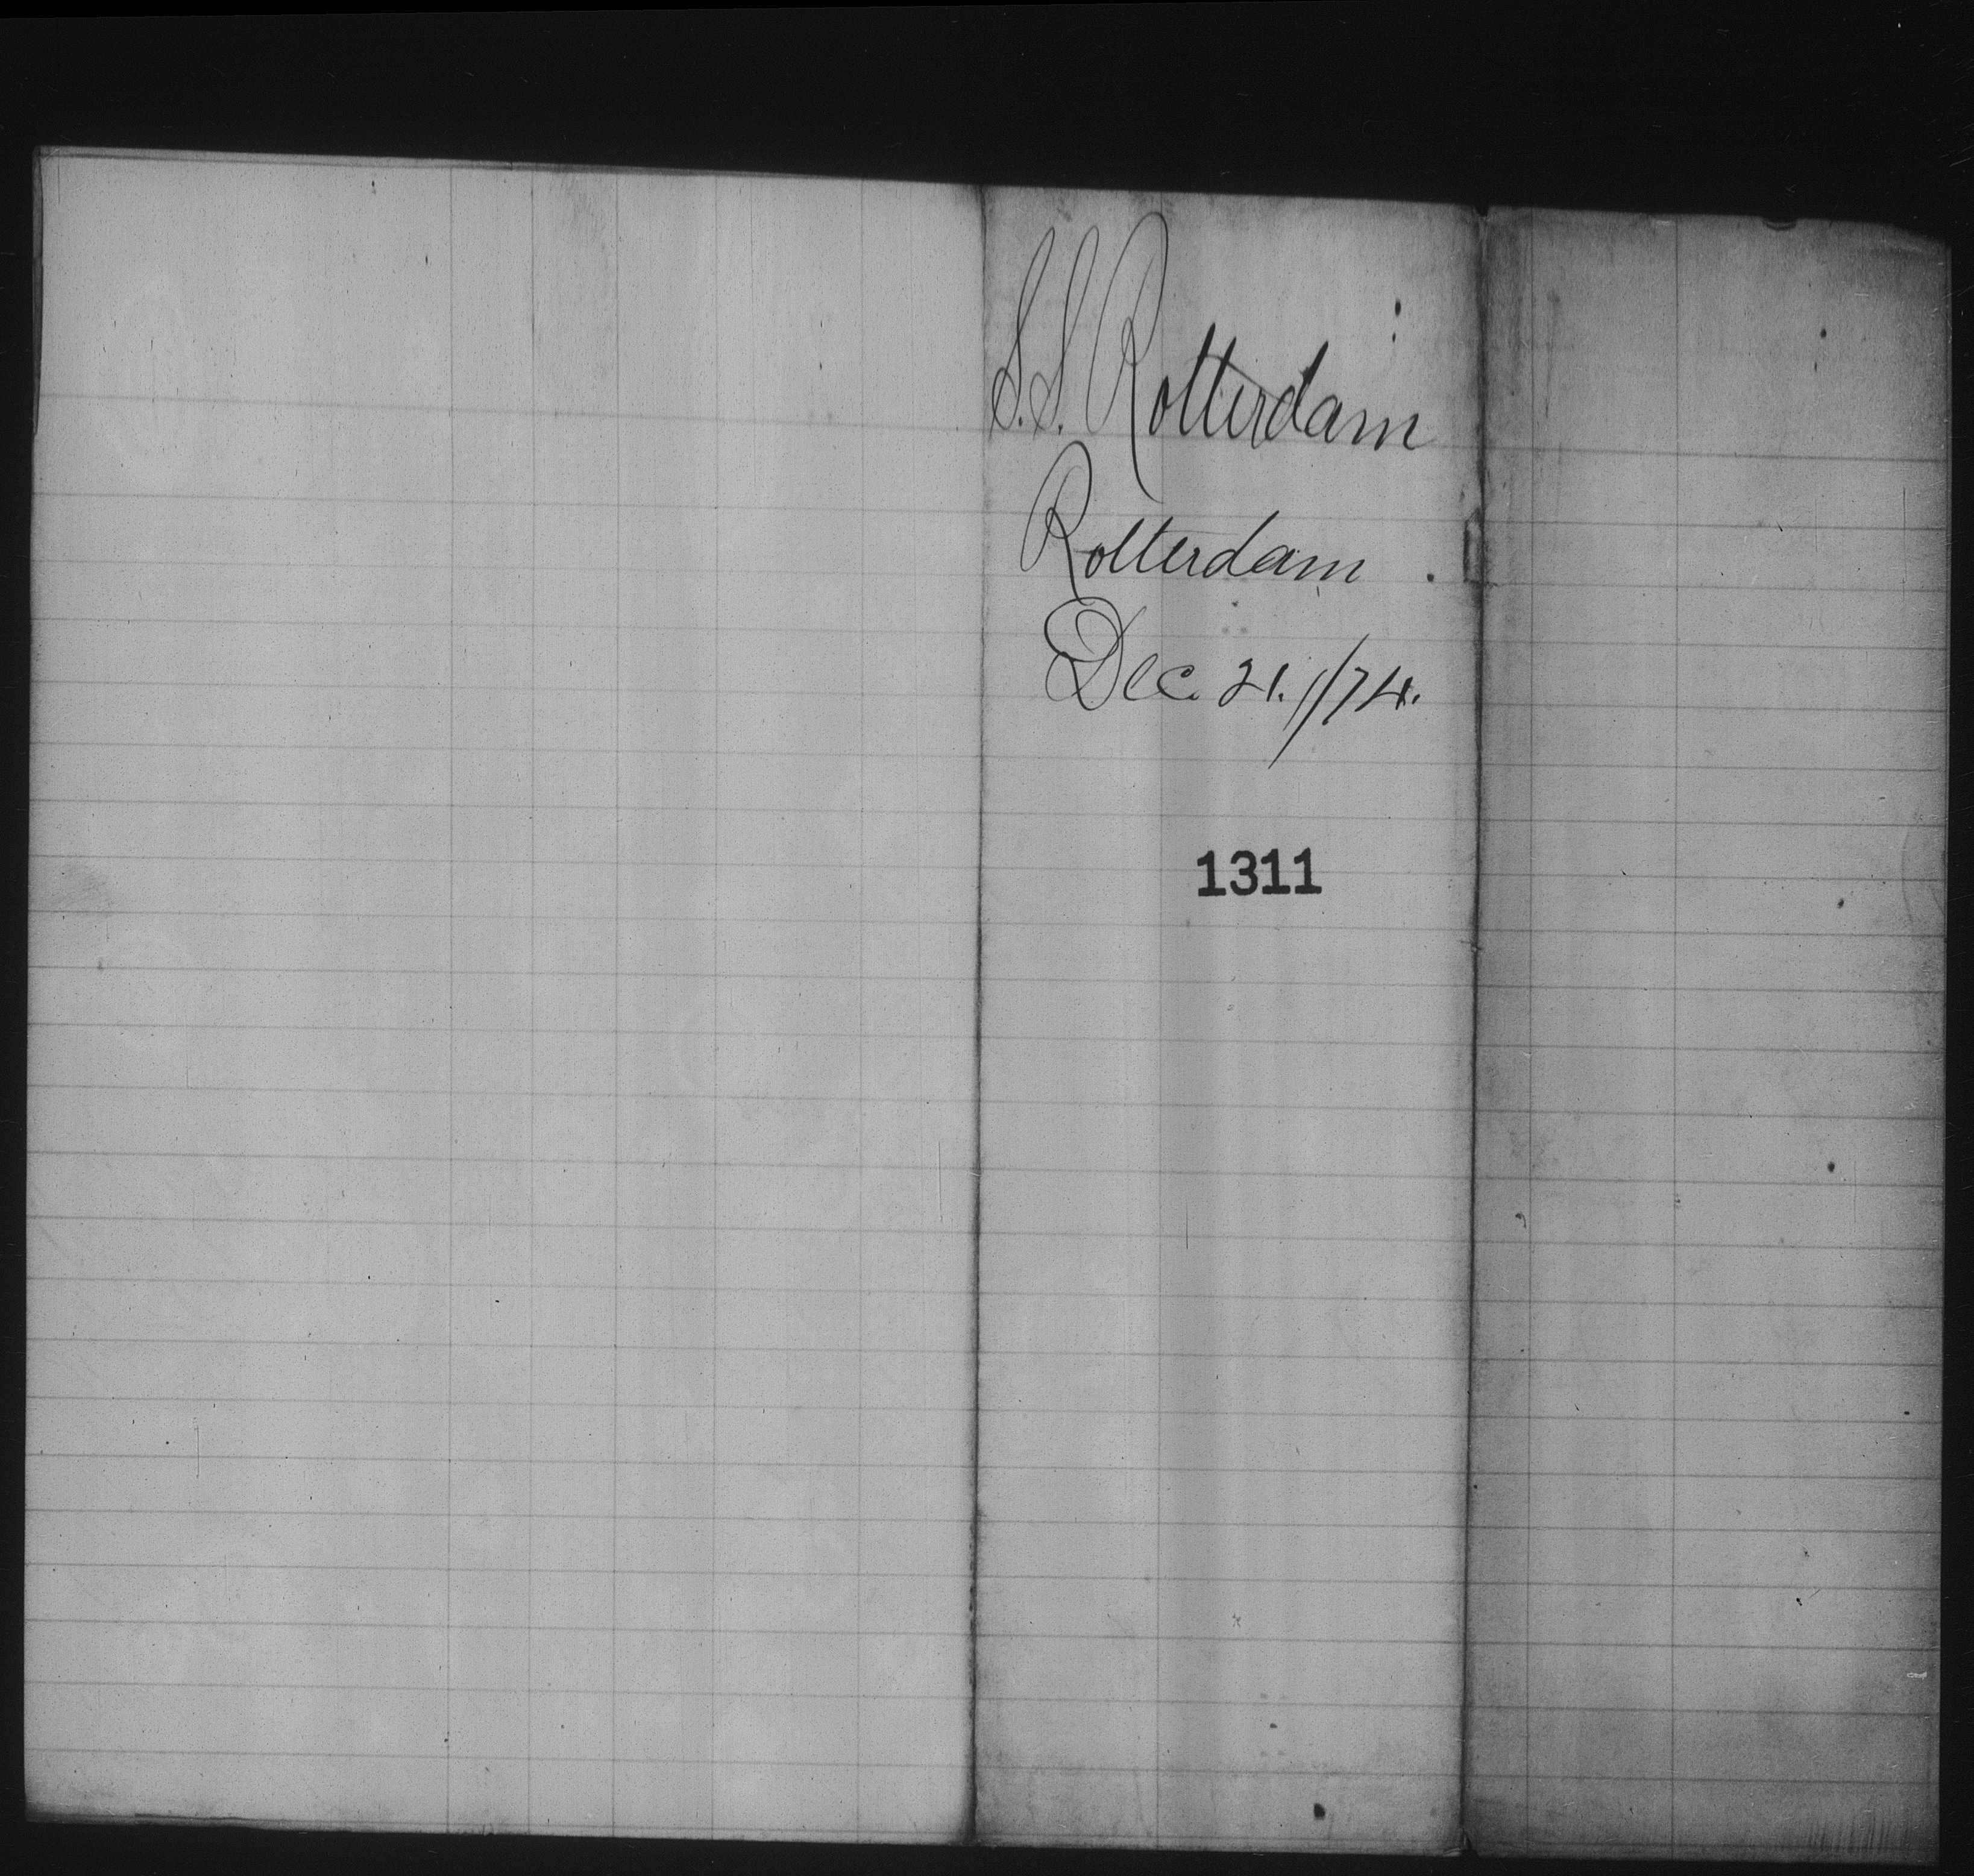 S.S. Rotterdam
Rotterdam
Dec. 21. //74.
1311